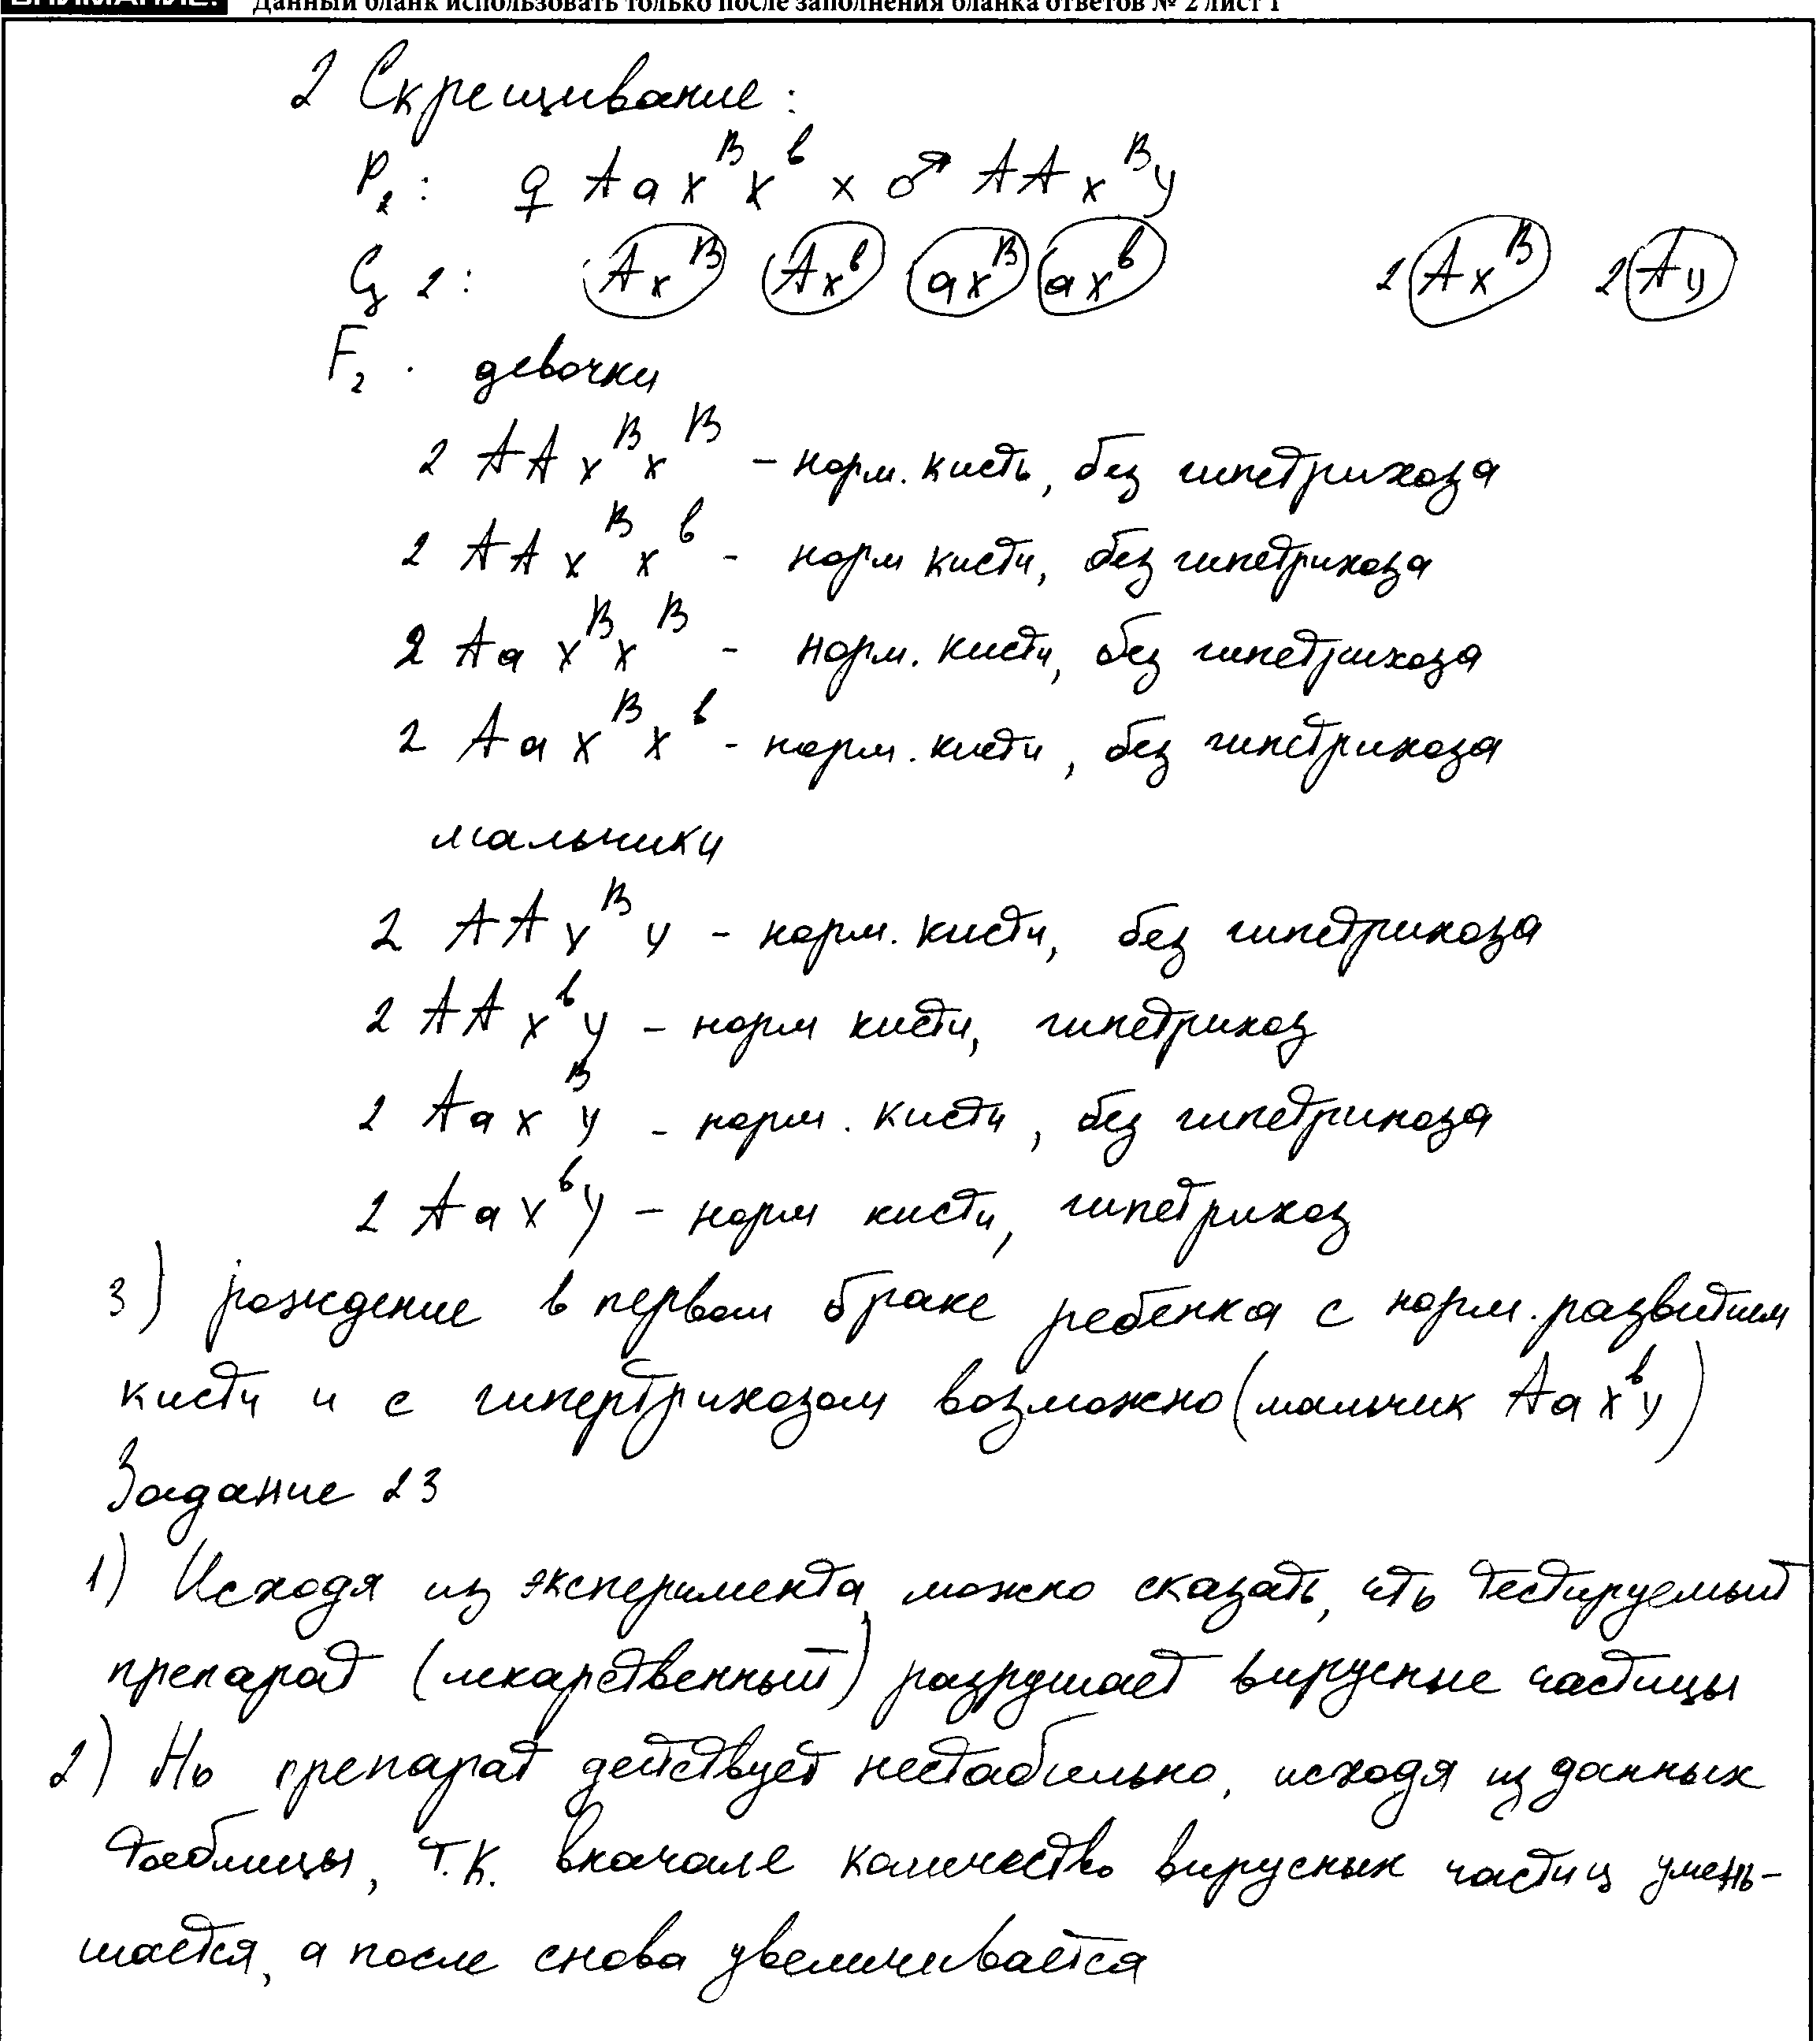 ВНИМАНИЕ! Данный бланк использовать только после заполнения бланка ответов № 2 лист 1
2 Скрещивание:
P₂: ♀ AaXᴮXᵇ x ♂ AAXᴮY
G 2: AXᴮ AXᵇ aXᴮ aXᵇ 2 AXᴮ 2 AY
F₂. девочки
2 AAXᴮXᴮ – норм. кисть, без гипетрихоза
2 AAXᴮXᵇ - норм кисти, без гипетрихоза
2 AaXᴮXᴮ - норм. кисти, без гипетрихоза
2 AaXᴮXᵇ - норм. кисти, без гипетрихоза
мальчики
2 AAXᴮY – норм. кисти, без гипетрихоза
2 AAXᵇY – норм кисти, гипетрихоз
2 AaXᴮY – норм. кисти, без гипетрихоза
2 AaXᵇY – норм кисти, гипетрихоз
3) рождение в первом браке ребенка с норм. развитием
кисти и с гипертрихозом возможно (мальчик AaXᵇY)
Задание 23
1) Исходя из эксперимента, можно сказать, что тестируемый
препарат (лекарственный) разрушает вирусные частицы
2) Но препарат действует нестабильно, исходя из данных
таблицы, т.к. вначале количество вирусных частиц умень-
шается, а после снова увеличивается